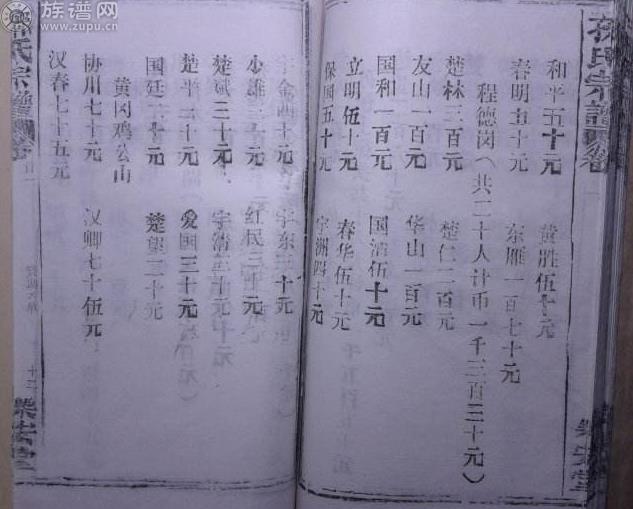 族谱网
www.zupu.cn
孙氏宗谱
乐安堂
和平五十元 黄胜伍十元
春明五十元 东雁一百七十元
程德岗（共二十人计币一千三百三十元）
楚林三百元 楚仁二百元
友山一百元 华山一百元
国和一百元 国清伍十元
立明伍十元 春华伍十元
保国五十元 宇洲四十元
金四十元 宇东三十元
小雄三十元 红民三十元
楚斌三十元 宇清三十元
楚平二十元 爱国三十元
国廷二十元 楚望二十元
黄冈鸡公山
协川七十元 汉卿七十伍元
汉春七十五元
氏宗谱
十二
乐安堂